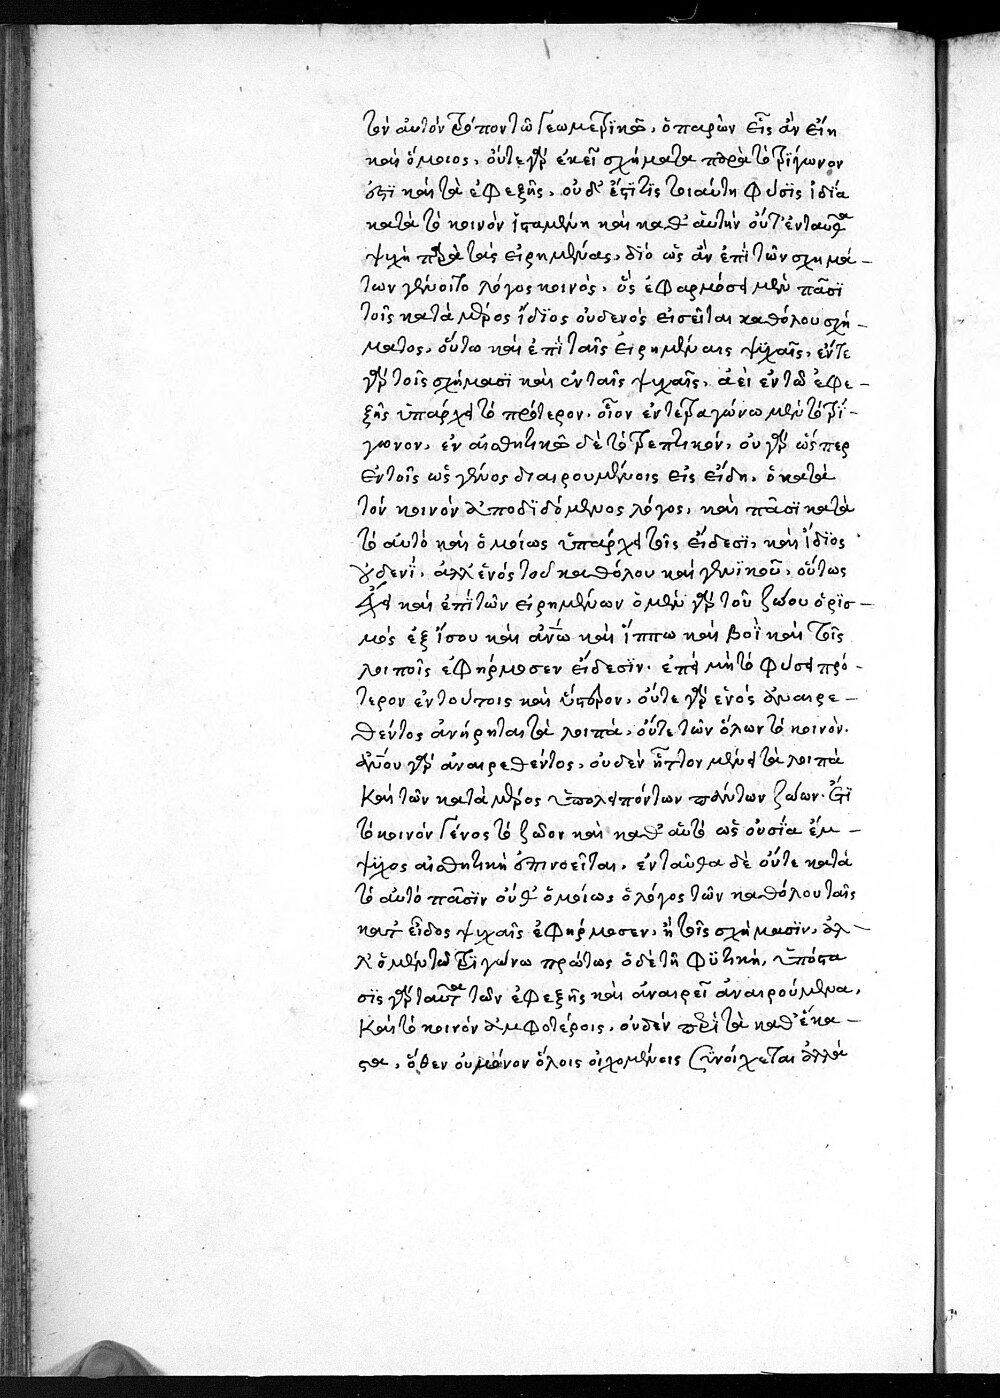 τὸν αὐτὸν τρόπον τῶ γεωμετρϊκῶ, ὁ παρὼν εἷς ἂν εἴη
καὶ ὅμοιος, οὔτε γὰρ ἐκεῖ σχήματα παρὰ τὸ τρίγωνον
ἐστὶ καὶ τὰ ἐφεξῆς, οὐδ' ἔστϊ τὶς τοιαύτη φύσϊς ἰδία
κατὰ τὸ κοινὸν ἱσταμένη καὶ καθ' αὑτὴν οὔτ' ἐνταῦθα
ψυχὴ παρὰ τὰς εἰρημένας, διὸ ὡς ἂν ἐπὶ τῶν σχημά–
των γένοιτο λόγος κοινὸς, ὃς ἐφαρμόσει μὲν πᾶσϊ
τοῖς κατὰ μέρος ἴδϊος οὐδενὸς εἰσεῖται καθόλου σχή–
ματος, οὕτω καὶ ἐπὶ ταῖς εἰρημέναις ψυχαῖς, ἔν τε
γὰρ τοῖς σχήμασϊ καὶ ἐν ταῖς ψυχαῖς, ἀεὶ ἐν τῶ ἐφε–
ξῆς ὑπάρχει τὸ πρότερον, οἷον ἐν τετραγώνω μὲν τὸ τρί–
γωνον, ἐν αἰσθητικῶ δὲ τὸ θρεπτικόν, οὐ γὰρ ὥσπερ
ἐν τοῖς ὡς γένος διαιρουμένοις εἰς εἴδη, ὁ κατὰ
τὸν κοινὸν ἀποδϊδόμενος λόγος, καὶ πᾶσϊ κατὰ
τὸ αὐτὸ καὶ ὁμοίως ὑπάρχει τοῖς εἴδεσϊ, καὶ ἴδϊος
οὐδενΐ, ἀλλ' ἑνὸς τοῦ καθόλου καὶ γενϊκοῦ, οὕτως
ἔχει καὶ ἐπὶ τῶν εἰρημένων ὁ μὲν γὰρ τοῦ ζώου ὁρϊσ–
μὸς ἐξ ἴσου καὶ ἀνω καὶ ἵππω καὶ βοῒ καὶ τοῖς
λοιποῖς ἐφήρμοσεν εἴδεσϊν. ἐπεὶ μὴ τὸ φύσει πρό–
τερον ἐν τούτοις καὶ ὕστερον, οὔτε γὰρ ἑνὸς ἀναιρε–
θέντος ἀνήρηται τὰ λοιπὰ, οὔτε τῶν ὅλων τὸ κοινὸν.
ἀνου γὰρ ἀναιρεθέντος, οὐδὲν ἧττον μένει τὰ λοιπὰ
καὶ τῶν κατὰ μέρος ὑπολειπόντων πάντων ζώων. ἔτϊ
τὸ κοινὸν γένος τὸ ζῶον καὶ καθ' αὑτὸ ὡς οὐσΐα ἔμ–
ψϋχος αἰσθητικὴ ἐπινοεῖται, ἐνταῦθα δὲ οὔτε κατὰ
τὸ αὐτὸ πᾶσϊν οὔθ' ὁμοίως ὁ λόγος τῶν καθόλου ταῖς
κατ' εἶδος ψυχαῖς ἐφήρμοσεν, ἢ τοῖς σχήμασϊν, ἀλ–
λ' ὁ μὲν τῶ τρϊγώνω πρώτως ὁ δὲ τῆ φϋτικῆ, ὑπόστα
σϊς γὰρ ταῦτα τῶν ἐφεξῆς καὶ ἀναιρεῖ ἀναιρούμενα,
καὶ τὸ κοινὸν ἀμφοτέροις, οὐδὲν παρὰ τὰ καθ' ἕκα–
στα, ὅθεν οὐ μόνον ὅλοις οἰχομένοις συνοίχεται ἀλλὰ